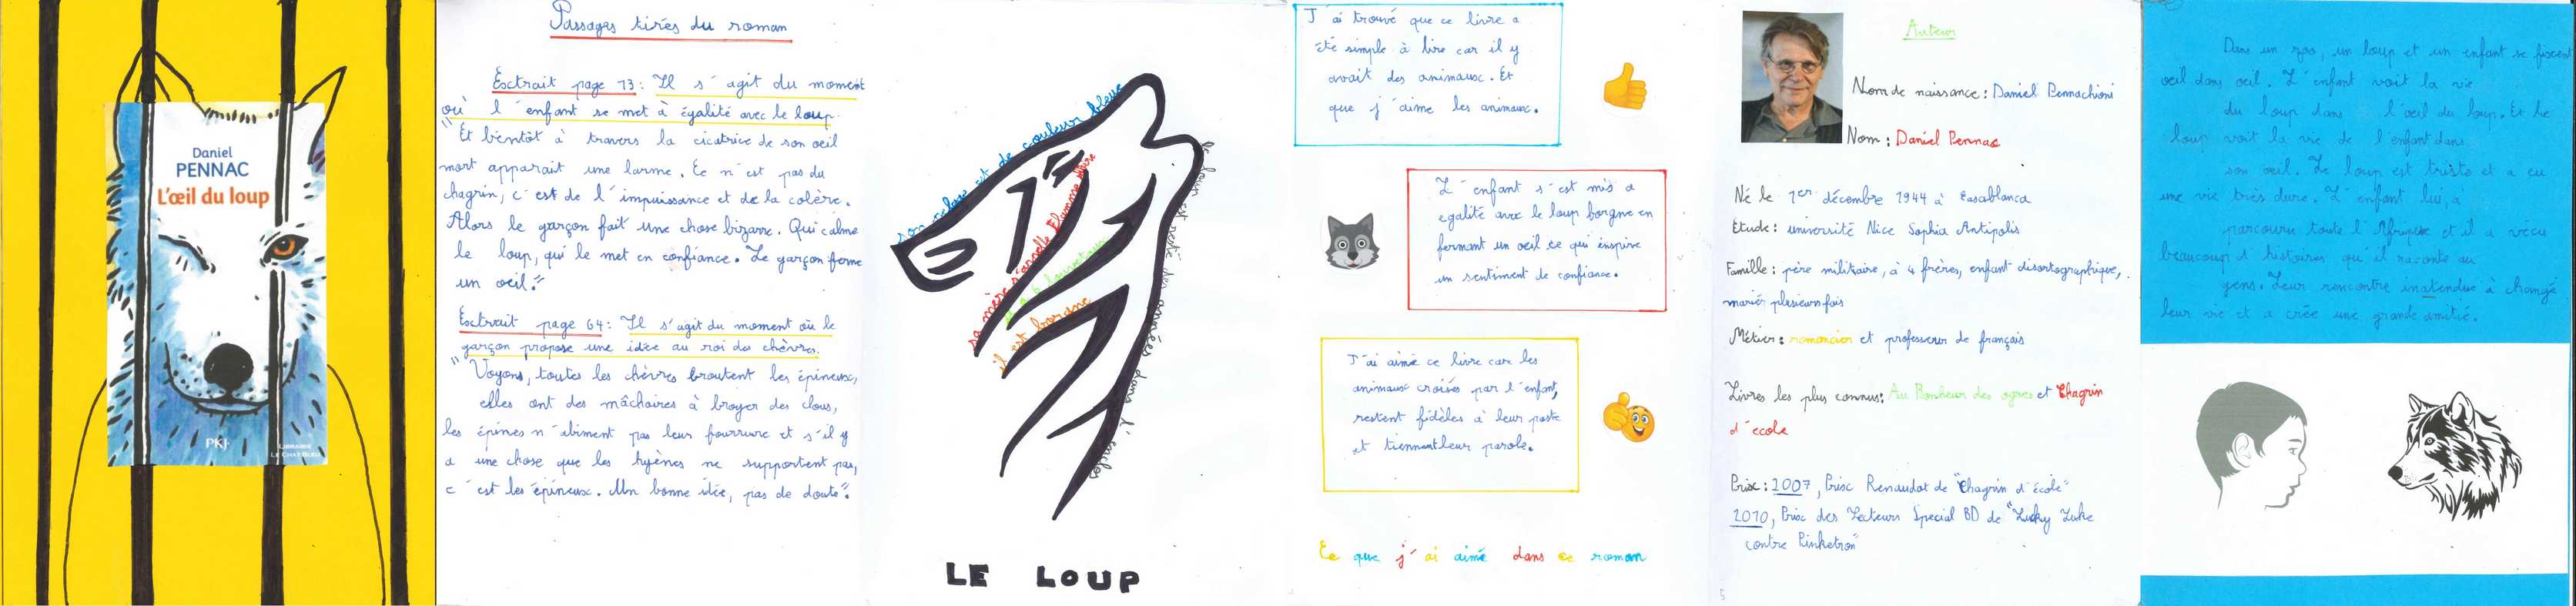 Daniel
PENNAC
L'œil du loup
PKJ
LIBRAIRIE
LE CHAT BLEU
Passages tirés du roman
Exctrait page 13: Il s'agit du moment
où l'enfant se met à égalité avec le loup.
"Et bientôt à travers la cicatrice de son oeil
mort apparait une larme. Ce n'est pas du
chagrin, c'est de l'impuissance et de la colère.
Alors le garçon fait une chose bizarre. Qui calme
le loup, qui le met en confiance. Le garçon ferme
un oeil."
Exctrait page 64: Il s'agit du moment où le
garçon propose une idée au roi des chèvres.
"Voyons, toutes les chèvres broutent les épineux,
elles ont des mâchoires à broyer des clous,
les épines n'abiment pas leur fourrure et s'il y
a une chose que les hyènes ne supportent pas,
c'est les épineux. Un bonne idée, pas de doute".
son pelage est de couleur bleue
sa mère s'appelle Flamme Noire
il est borgne
le loup est resté des années dans l'enclos
LE LOUP
J'ai trouvé que ce livre a
été simple à lire car il y
avait des animaux. Et
que j'aime les animaux.
L'enfant s'est mis a
egalité avec le loup borgne en
fermant un oeil ce qui inspire
un sentiment de confiance.
J'ai aimé ce livre car les
animaux croisés par l'enfant,
restent fidèles à leur poste
et tiennent leur parole.
Ce que j'ai aimé dans ce roman
Auteur
Nom de naissance: Daniel Pennachioni
Nom: Daniel Pennac
Né le 1er décembre 1944 à Casablanca
Etude: université Nice Sophia Antipolis
Famille: père militaire, à 4 frères, enfant disortographique,
mariér plusieurs fois
Métier: romancier et professeur de français
Livres les plus connus: Au Bonheur des ogres et Chagrin
d'école
Prix: 2007, Prix Renaudot de "Chagrin d'école"
2010, Prix des Lecteurs Special BD de "Lucky Luke
contre Pinketron"
5
Dans un zoo, un loup et un enfant se fixent
oeil dans oeil. L'enfant voit la vie
du loup dans l'œil du loup. Et le
loup voit la vie de l'enfant dans
son oeil. Le loup est triste et a eu
une vie très dure. L'enfant lui, a
parcouru toute l'Afrique et il a vécu
beaucoup d'histoires qu'il raconte au
gens. Leur rencontre inatendue à changé
leur vie et a crée une grande amitié.